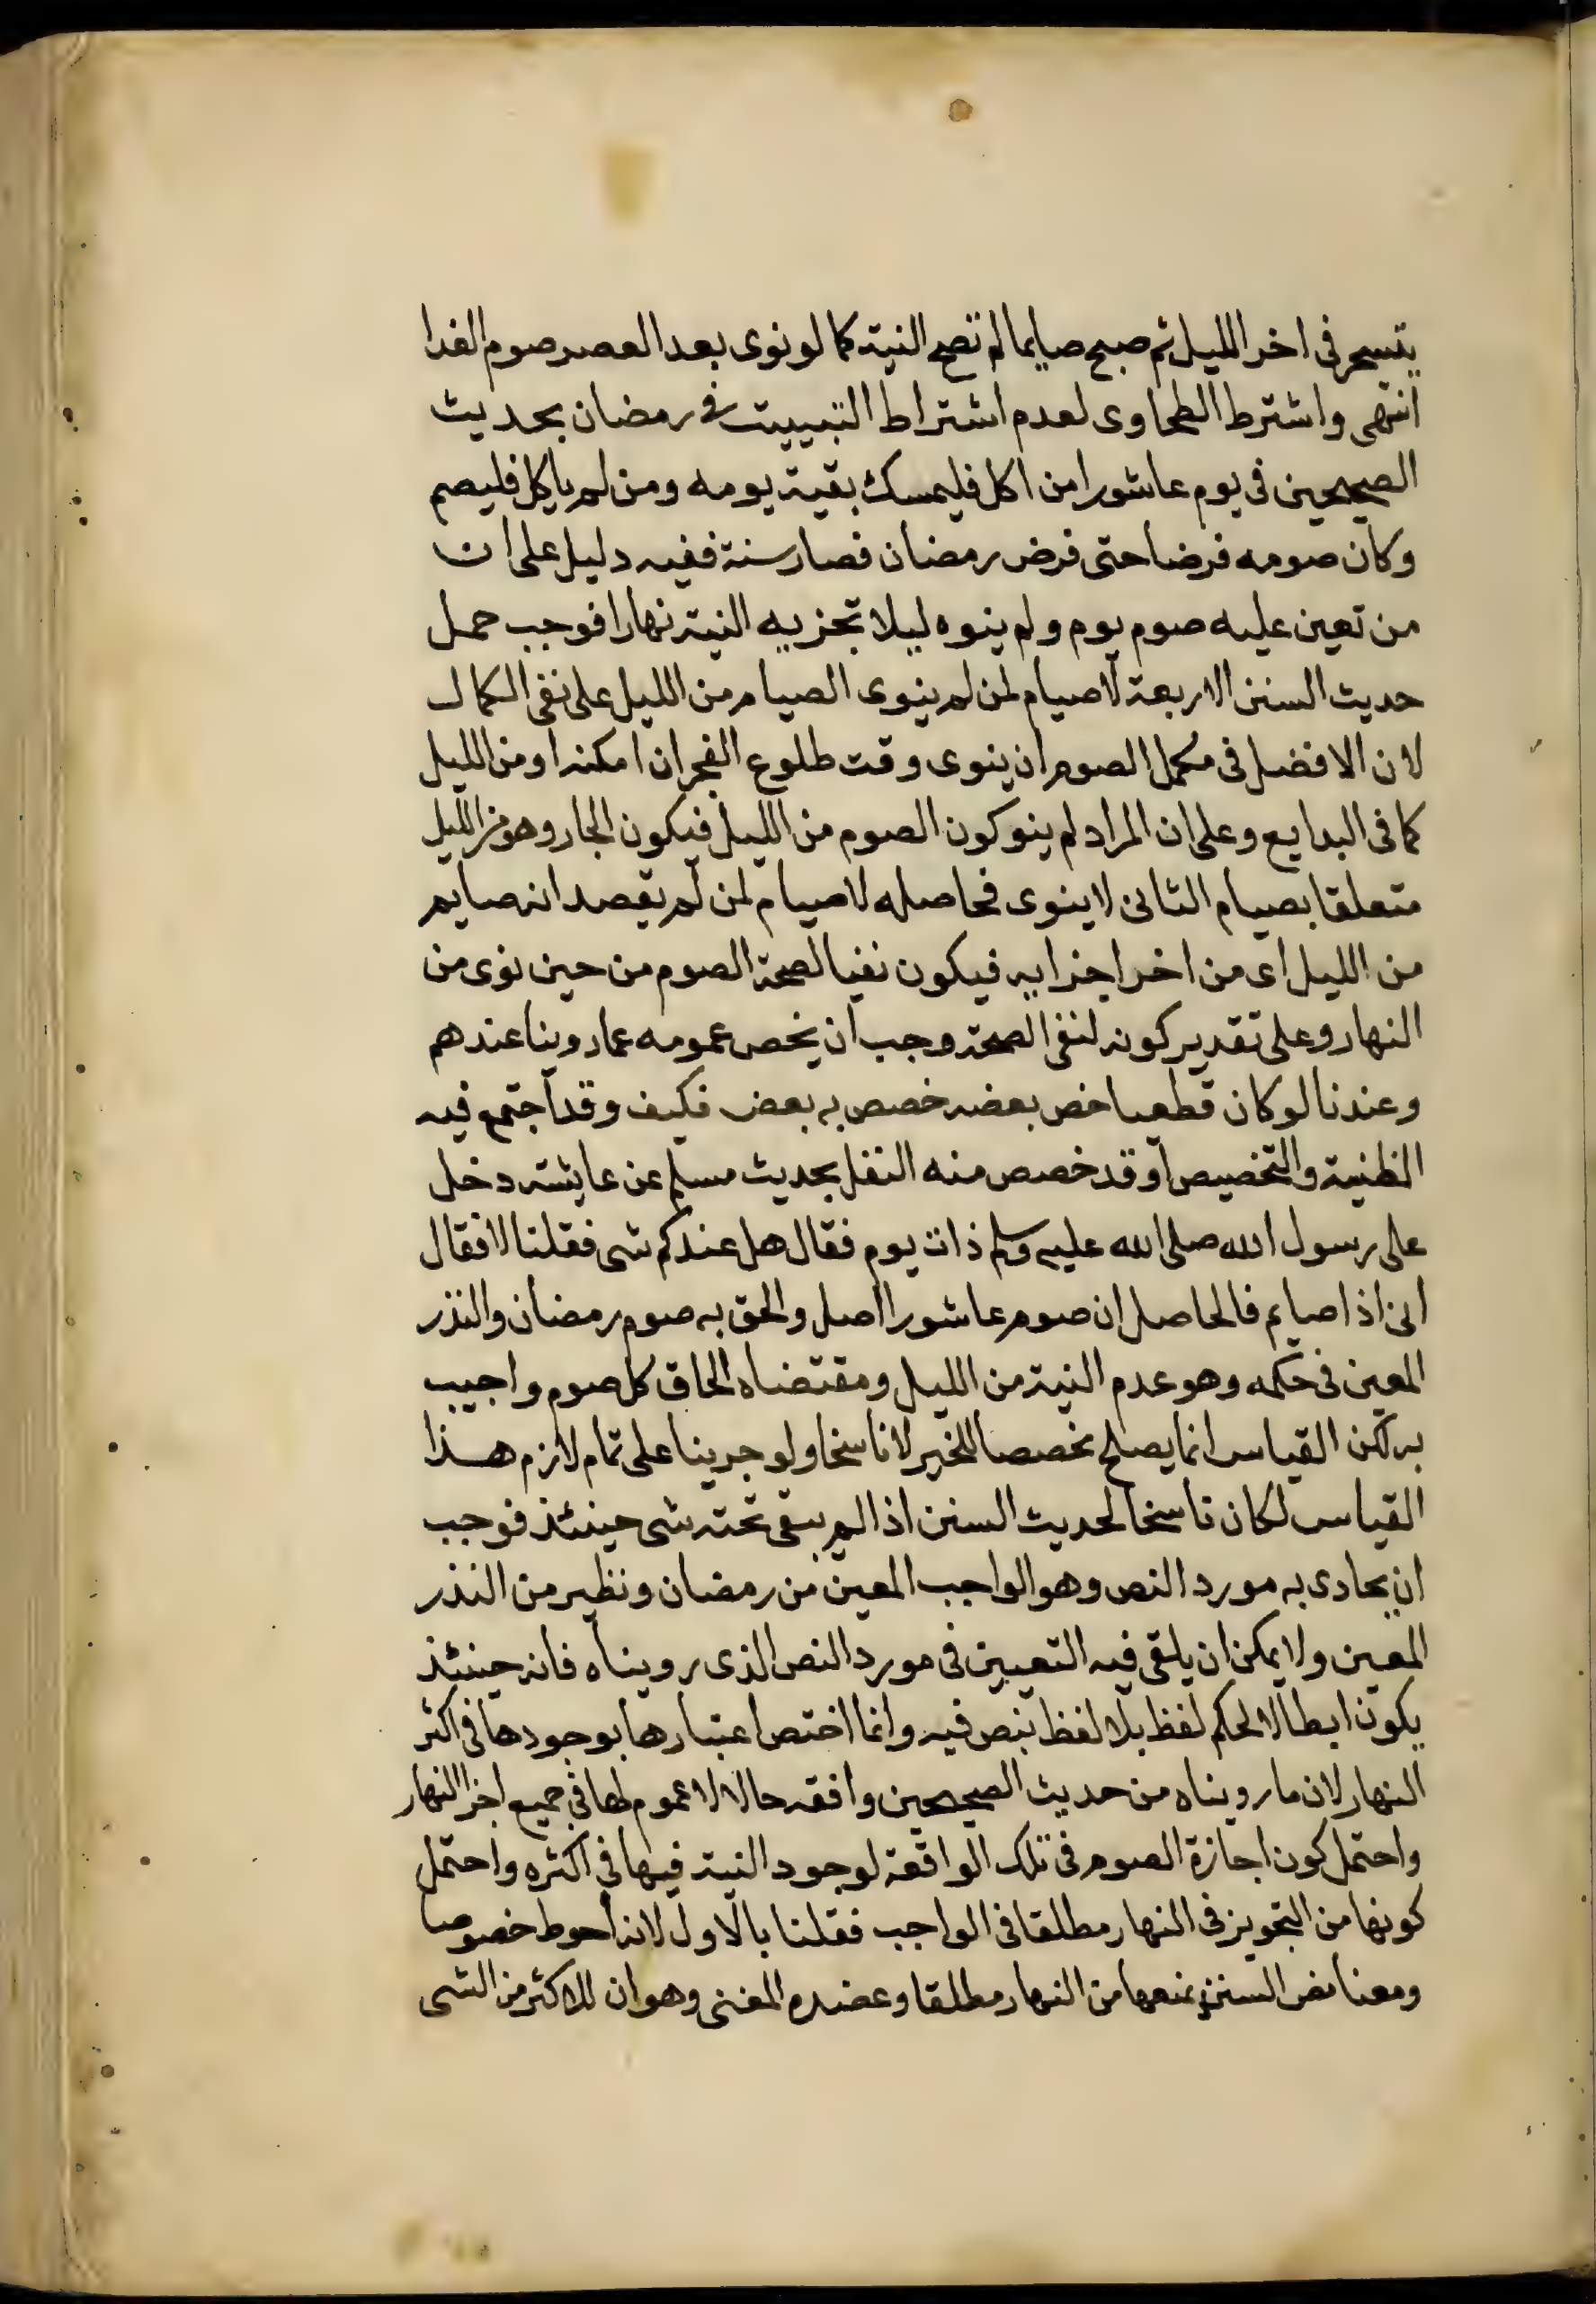 يتسحر فى اخر الليل ثم صبح صايما لم تصح النية كما لو نوى بعد العصر صوم الغدا
انتهى واشترط الطحاوى لعدم اشتراط التبييت فى رمضان بحديث
الصحيحين فى يوم عاشورا من اكل فليمسك بقية يومه ومن لم ياكل فليصم
وكان صومه فرضا حتى فرض رمضان فصار سنة ففيه دليل على ان
من تعين عليه صوم يوم ولم ينوه ليلا تجزيه النية نهارا فوجب حمل
حديث السنن الاربعة لا صيام لمن لم ينوى الصيام من الليل على نفى الكمال
لان الافضل فى مكمل الصوم ان ينوى وقت طلوع الفجر ان امكنه او من الليل
كما فى البدايع وعلى ان المراد لم ينو كون الصوم من الليل فيكون الجار وهو من الليل
متعلقا بصيام الثانى لا ينوى فحاصله لا صيام لمن لم يقصد انه صايم
من الليل اى من اخر اجزايه فيكون نفيا لصحة الصوم من حين نوى من
النهار وعلى تقدير كونه لنفى الصحة وجب ان يخص عمومه عما روينا عندهم
وعندنا لو كان قطعيا خص بعضه خصص به بعض فكيف وقد اجتمع فيه
الظنية والتخصيص او قد خصص منه النفل بحديث مسلم عن عايشة دخل
على رسول الله صلى الله عليه وسلم ذات يوم فقال هل عندكم شى فقلنا لا فقال
انى اذا صايم فالحاصل ان صوم عاشورا اصل والحق به صوم رمضان والنذر
المعين فى حكمه وهو عدم النية من الليل ومقتضاه الحاق كل صوم واجيب
به لكن القياس انما يصلح مخصصا للخبر لا ناسخا ولو جرينا على تمام لازم هذا
القياس لكان ناسخا لحديث السنن اذا لم يبقى تحته شى حينئذ فوجب
ان يحادى به مورد النص وهو الواجب المعين من رمضان ونظيره من النذر
المعين ولا يمكن ان يلقى فيه التعيين فى مورد النص الذى رويناه فانه حينئذ
يكون ابطالا لحكم لفظ بلا لفظ ينص فيه وانما اختص اعتبارها بوجودها فى اكثر
النهار لان ما رويناه من حديث الصحيحين وافقه حالا لا عموم لها فى جميع اجزا النهار
واحتمل كون اجازة الصوم فى تلك الواقعة لوجود النية فيها فى اكثره واحتمل
كونها من التجويز فى النهار مطلقا فى الواجب فقلنا بالاول لانه احوط خصوصا
ومعنا نص السنن بمنعها من النهار مطلقا وعضده المعنى وهو ان للاكثر من الشى